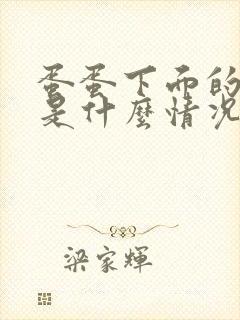 蛋蛋下面的
是什麼情況
梁家輝